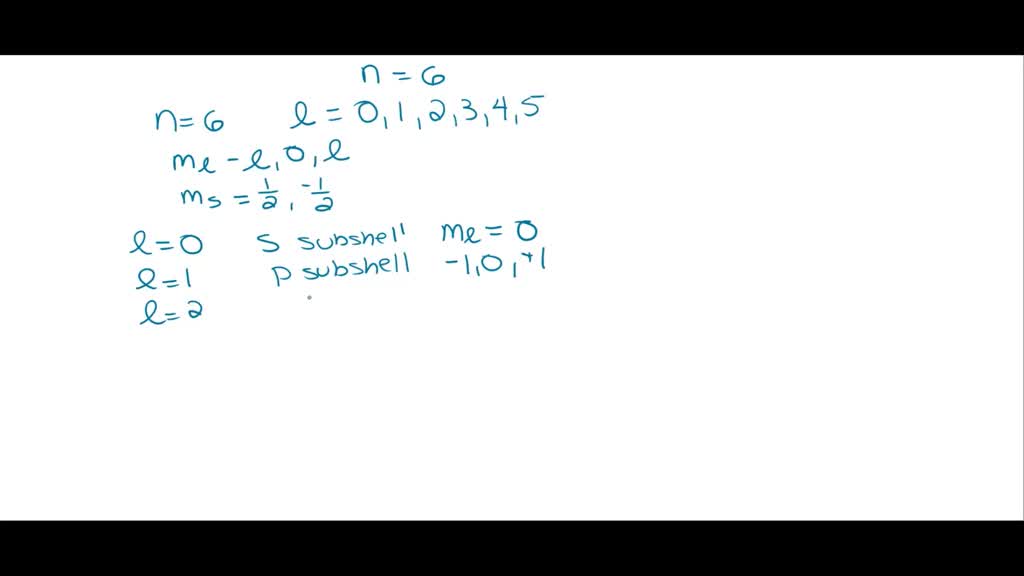 n = 6
n = 6 l = 0, 1, 2, 3, 4, 5
ml - l, 0, l
ms = 1/2, -1/2
l = 0 S subshell ml = 0
l = 1 P subshell -1, 0, +1
l = 2